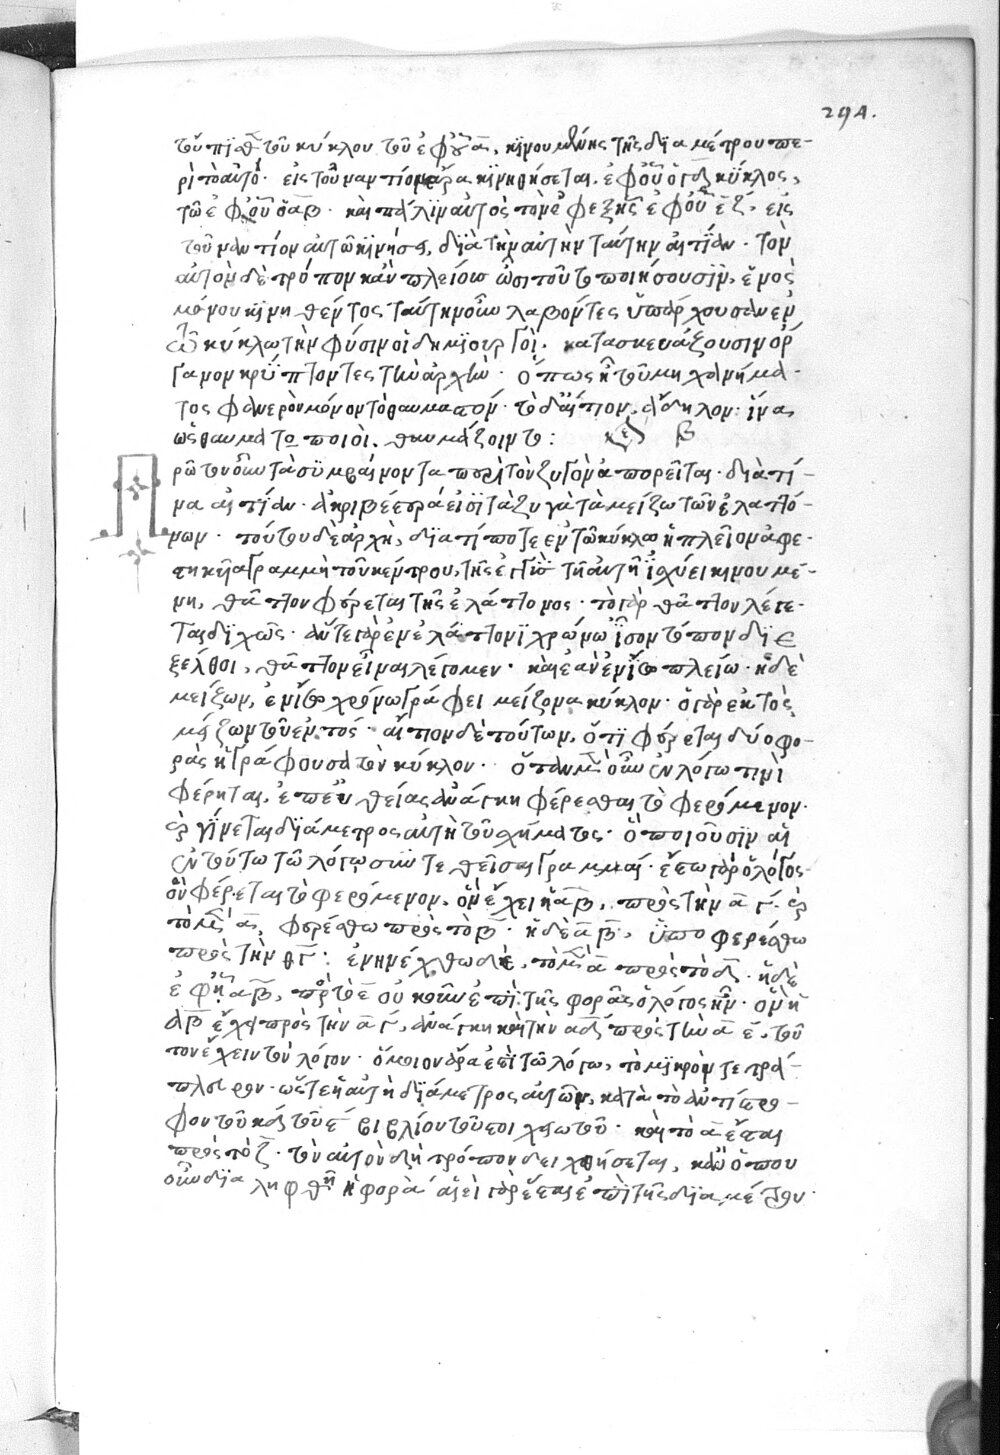 294.
τοὐπίσθεν τοῦ κύκλου τοῦ ἐφ' οὗ α, κινουμένης τῆς διαμέτρου πε-
ρὶ τὸ αὐτό· εἰς τοὐναντίον ἄρα κινηθήσεται, ἐφ' οὗ ὁ γδ κύκλος,
τῷ ἐφ' οὗ ὁ αβ· καὶ πάλιν αὐτὸς τὸν ἐφεξῆς ἐφ' οὗ εζ, εἰς
τοὐναντίον αὐτῷ κινήσει, διὰ τὴν αὐτὴν ταύτην αἰτίαν· τὸν
αὐτὸν δὲ τρόπον κἂν πλείους ὦσι τοῦτο ποιήσουσιν, ἑνὸς
μόνου κινηθέντος ταύτην οὖν λαβόντες ὑπάρχουσαν ἐν
τῷ κύκλῳ τὴν φύσιν οἱ δημιουργοὶ. κατασκευάζουσιν ὄρ
γανον κρύπτοντες τὴν ἀρχὴν· ὅπως ᾖ τοῦ μηχανήμα-
τος φανερὸν μόνον τὸ θαυμαστόν· τὸ δ' αἴτιον, ἄδηλον: ἵνα
ὡς θαυματοποιοὶ. θαυμάζοιντο: β
Πρῶτον οὖν τὰ συμβαίνοντα περὶ τὸν ζυγὸν ἀπορεῖται· διὰ τί-
να αἰτίαν· ἀκριβέστερά εἰσι τὰ ζυγὰ τὰ μείζω τῶν ἐλαττό-
νων· τούτου δὲ ἀρχὴ, διὰ τί ποτε ἐν τῷ κύκλῳ ἡ πλεῖον ἀφε-
στηκυῖα γραμμὴ τοῦ κέντρου, τῆς ἐγγὺς τῇ αὐτῇ ἰσχύει κινουμέ-
νη, θᾶττον φέρεται τῆς ἐλάττονος· τὸ γὰρ θᾶττον λέγε-
ται διχῶς· ἄν τε γὰρ ἐν ἐλάττονι χρόνῳ ἴσον τόπον διε
ξέλθοι, θᾶττον εἶναι λέγομεν· καὶ ἐὰν ἐν ἴσῳ πλείω· ἡ δὲ
μείζων, ἐν ἴσῳ χρόνῳ γράφει μείζονα κύκλον· ὁ γὰρ ἐκτὸς,
μείζων τοῦ ἐντός· αἴτιον δὲ τούτων, ὅτι φέρεται δύο φο-
ρὰς ἡ γράφουσα τὸν κύκλον· ὅταν μὲν οὖν ἐν λόγῳ τινὶ
φέρηται, ἐπ' εὐθείας ἀνάγκη φέρεσθαι τὸ φερόμενον·
καὶ γίνεται διάμετρος αὐτὴ τοῦ σχήματος· ὃ ποιοῦσιν αἱ
ἐν τούτῳ τῷ λόγῳ συντεθεῖσαι γραμμαί· ἔστω γὰρ ὁ λόγος
ὃν φέρεται τὸ φερόμενον, ὃν ἔχει ἡ αβ, πρὸς τὴν αγ· καὶ
τὸ μὲν α, φερέσθω πρὸς τὸ β· ἡ δὲ αβ, ὑποφερέσθω
πρὸς τὴν ηγ: ἐνηνέχθω δὲ, τὸ μὲν α πρὸς τὸ δ· ἡ δὲ
ἐφ' ᾗ αβ, πρὸς τὸ ε οὐκοῦν ἐπὶ τῆς φορᾶς ὁ λόγος ἦν· ὃν ἡ
αβ ἔχει πρὸς τὴν αγ, ἀνάγκη καὶ τὴν αδ πρὸς τὴν αε, τοῦ
τον ἔχειν τὸν λόγον· ὅμοιον ἄρα ἐστὶ τῷ λόγῳ, τὸ μικρὸν τετρά-
πλευρον· ὥστε ἡ αὐτὴ διάμετρος αὐτῶν, κατὰ τὸ ἀντίστρο-
φον τοῦ κδ τοῦ ε βιβλίου τοῦ στοιχειωτοῦ· καὶ τὸ α ἔσται
πρὸς τὸ ζ· τὸν αὐτὸν δὴ τρόπον δειχθήσεται, κἂν ὅπου
οὖν διαληφθῇ ἡ φορὰ· αἰεὶ γὰρ ἔσται ἐπὶ τῆς διαμέτρου·